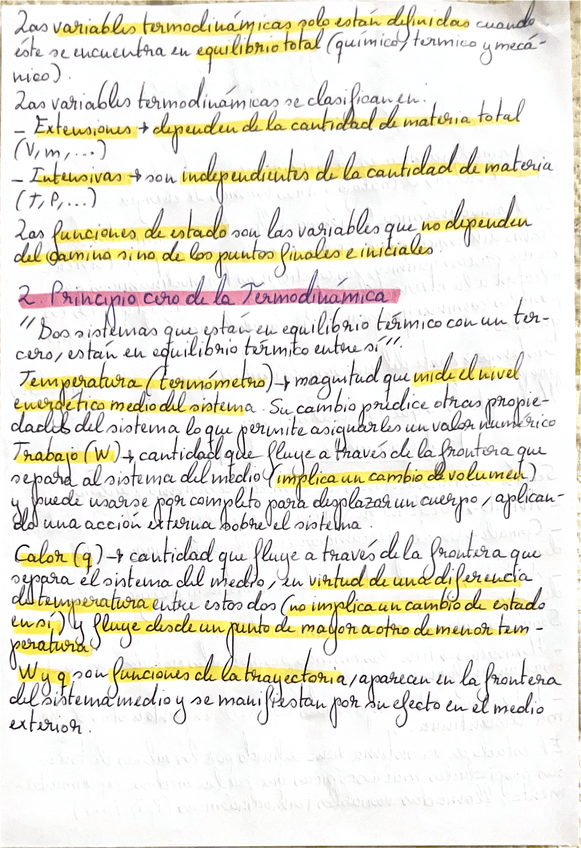 Las variables termodinámicas solo están definidas cuando
éste se encuentra en equilibrio total (químico, termico y mecá-
nico).
Las variables termodinámicas se clasifican en:
- Extensiones → dependen de la cantidad de materia total
(V, m, ...)
- Intensivas → son independientes de la cantidad de materia
(T, P, ...)
Las funciones de estado son las variables que no dependen
del camino sino de los puntos finales e iniciales
2. Principio cero de la Termodinámica
"Dos sistemas que están en equilibrio térmico con un ter-
cero, están en equilibrio térmico entre sí".
Temperatura (termómetro) → magnitud que mide el nivel
energético medio del sistema. Su cambio predice otras propie-
dades del sistema lo que permite asignarles un valor numérico
Trabajo (W) → cantidad que fluye a través de la frontera que
separa al sistema del medio (implica un cambio de volumen)
y puede usarse por completo para desplazar un cuerpo, aplican-
do una acción externa sobre el sistema.
Calor (q) → cantidad que fluye a través de la frontera que
separa el sistema del medio, en virtud de una diferencia
de temperatura entre estos dos (no implica un cambio de estado
en sí) y fluye desde un punto de mayor a otro de menor tem-
peratura
W y q son funciones de la trayectoria, aparecen en la frontera
del sistema medio y se manifiestan por su efecto en el medio
exterior.